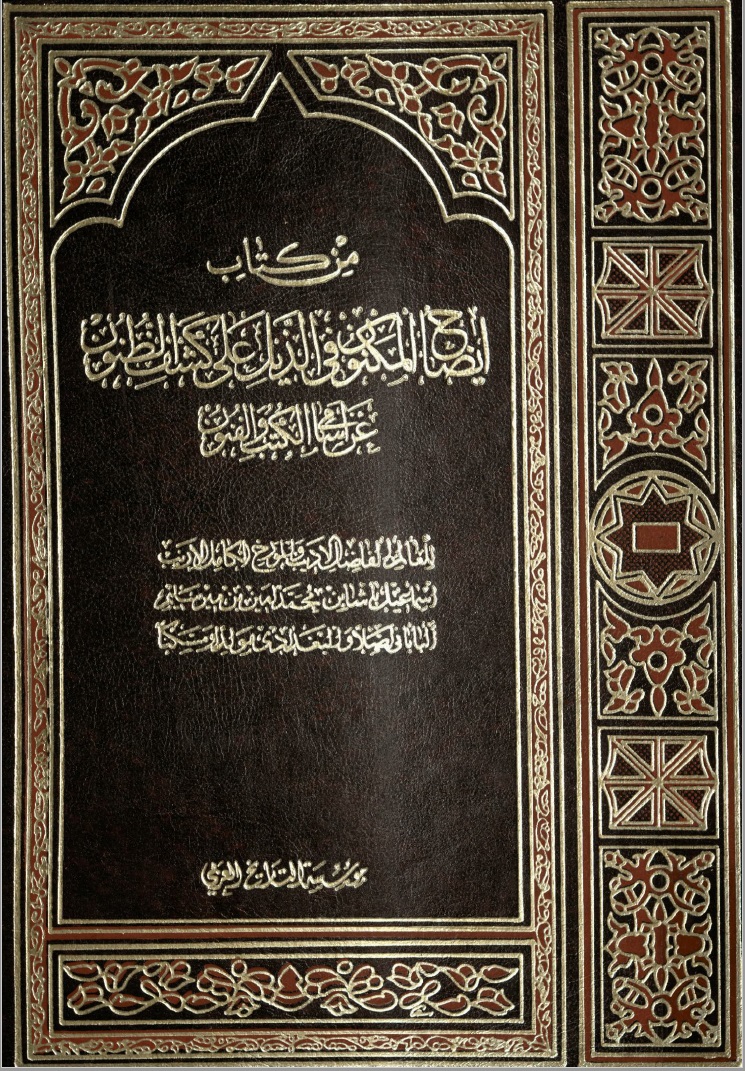 من كتاب
إيضاح المكنون في الذيل على كشف الظنون
عن أسامي الكتب والفنون
للعالم الفاضل الأديب والمؤرخ الكامل الأريب
إسماعيل باشا بن محمد أمين بن مير سليم
الباباني أصلا والبغدادي مولدا ومسكنا
مؤسسة التاريخ العربي